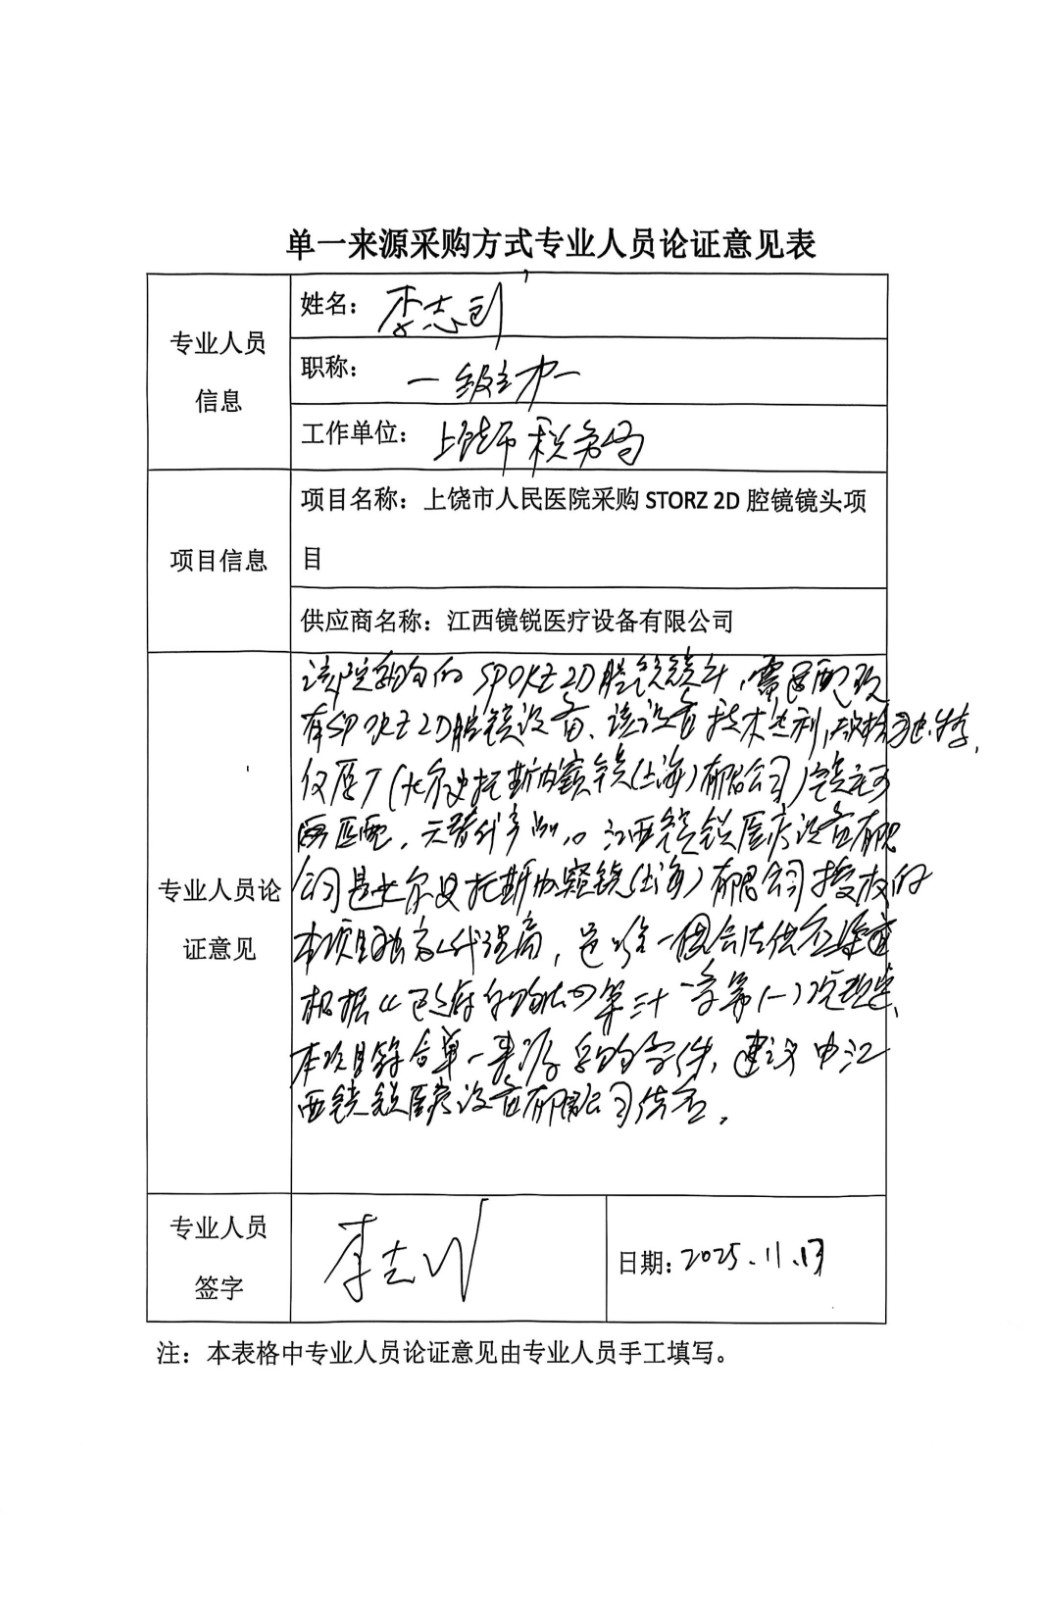 单一来源采购方式专业人员论证意见表
专业人员
信息
姓名：李志刚
职称：一级主办
工作单位：上饶市税务局
项目信息
项目名称：上饶市人民医院采购 STORZ 2D 腔镜镜头项
目
供应商名称：江西镜锐医疗设备有限公司
专业人员论
证意见
该院采购的STORZ 2D腔镜镜头，需匹配现
有STORZ 2D腔镜设备、该设备技术专利，结构独特，
仅原厂（卡尔史托斯内窥镜（上海）有限公司）镜头可
匹配，无替代产品。江西镜锐医疗设备有限
公司是卡尔史托斯内窥镜（上海）有限公司授权的
本项目独家代理商，是唯一合法供应渠道
根据《政府采购法》第三十一条第（一）项规定，
本项目符合单一来源采购条件，建议由江
西镜锐医疗设备有限公司供应。
专业人员
签字
李志刚
日期：2025.11.13
注：本表格中专业人员论证意见由专业人员手工填写。